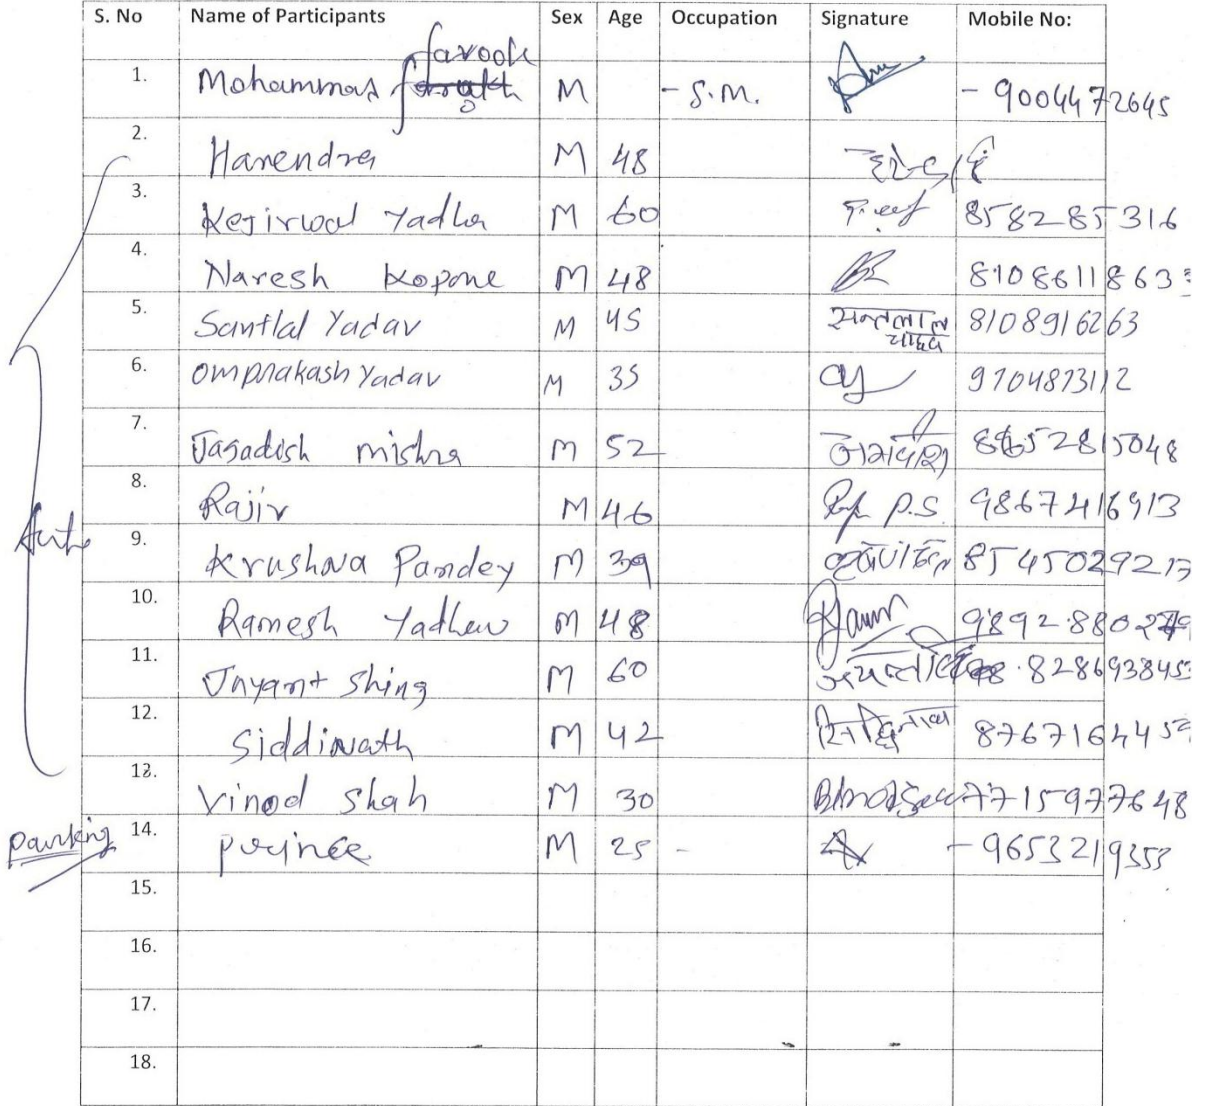 S. No Name of Participants Sex Age Occupation Signature Mobile No:
farook
1. Mohammad M - S.M. - 9004472645
2. Harendra M 48
3. Kejirwal Yadha M 60 858285316
4. Naresh Kopone M 48 8108611863
5. Santlal Yadav M 45 सन्तलाल 8108916263
यादव
6. omprakash Yadav M 35 9704873112
7. Jagadish mishra M 52
8. Rajiv M 46 P.S. 9867416913
9. Krushna Pandey M 39 8545029217
10. Ramesh Yadhav M 48
11. Jayant Shing M 60
12. Siddinath M 42
13. Vinod Shah M 30 7715977648
14. prince M 25 - - 9653219353
Auto
parking
15.
16.
17.
18.